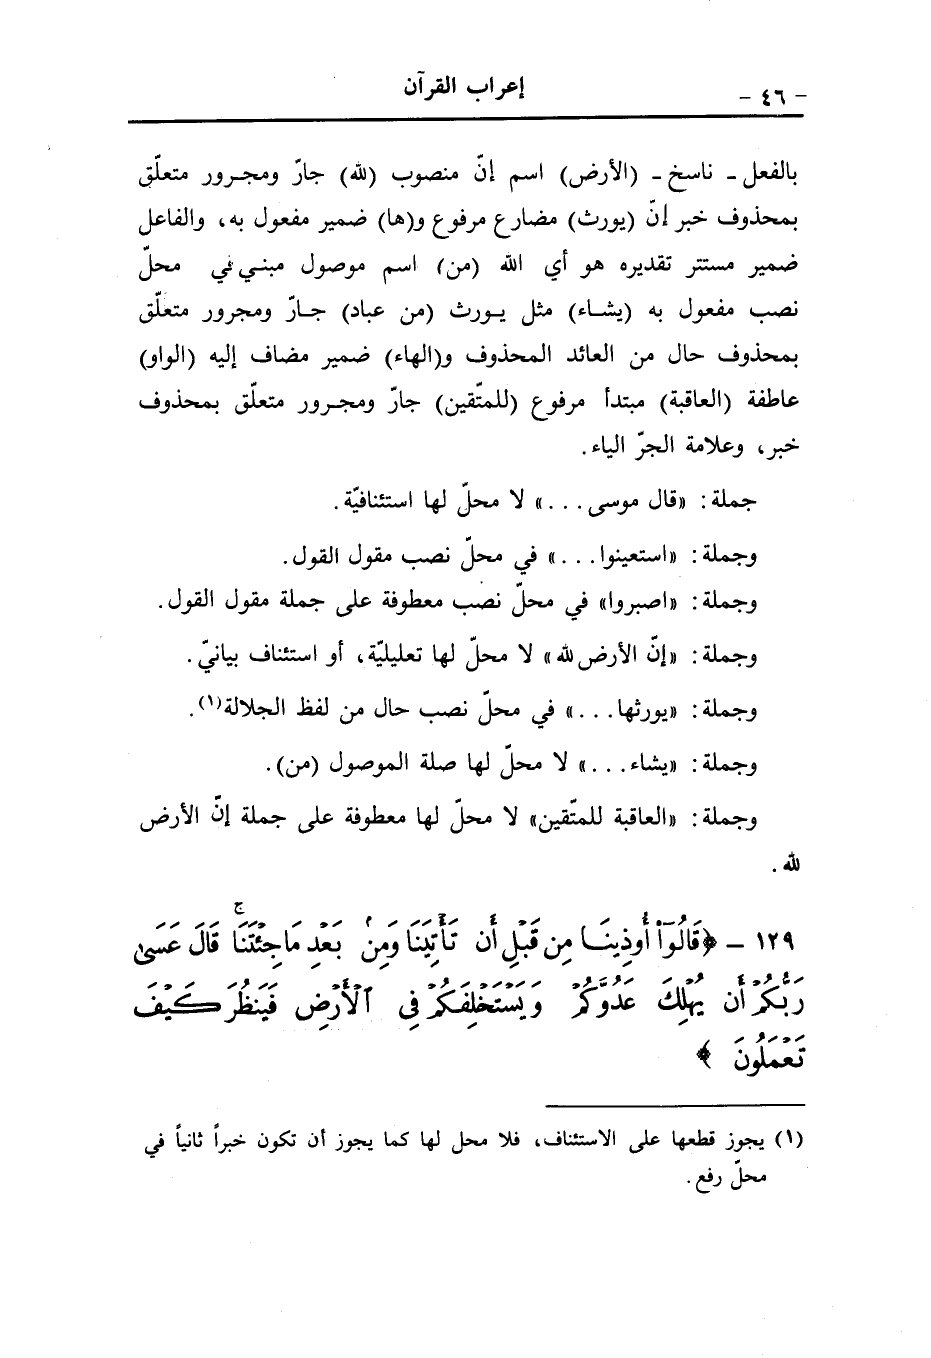 - ٤٦ - إعراب القرآن
بالفعل ـ ناسخ ـ (الأرض) اسم إنّ منصوب (لله) جارّ ومجرور متعلّق
بمحذوف خبر إنّ (يورث) مضارع مرفوع و(ها) ضمير مفعول به، والفاعل
ضمير مستتر تقديره هو أي الله (من) اسم موصول مبني في محلّ
نصب مفعول به (يشاء) مثل يورث (من عباد) جارّ ومجرور متعلّق
بمحذوف حال من العائد المحذوف و(الهاء) ضمير مضاف إليه (الواو)
عاطفة (العاقبة) مبتدأ مرفوع (للمتّقين) جارّ ومجرور متعلّق بمحذوف
خبر، وعلامة الجرّ الياء.
جملة: «قال موسى...» لا محلّ لها استئنافيّة.
وجملة: «استعينوا...» في محلّ نصب مقول القول.
وجملة: «اصبروا» في محلّ نصب معطوفة على جملة مقول القول.
وجملة: «إنّ الأرض لله» لا محلّ لها تعليليّة، أو استئناف بيانيّ.
وجملة: «يورثها...» في محلّ نصب حال من لفظ الجلالة(١).
وجملة: «يشاء...» لا محلّ لها صلة الموصول (من).
وجملة: «العاقبة للمتّقين» لا محلّ لها معطوفة على جملة إنّ الأرض
لله.
١٢٩ ـ ﴿قَالُوٓاْ أُوذِينَا مِن قَبْلِ أَن تَأْتِيَنَا وَمِنۢ بَعْدِ مَا جِئْتَنَا ۚ قَالَ عَسَىٰ
رَبُّكُمْ أَن يُهْلِكَ عَدُوَّكُمْ وَيَسْتَخْلِفَكُمْ فِى ٱلْأَرْضِ فَيَنظُرَ كَيْفَ
تَعْمَلُونَ ﴾
(١) يجوز قطعها على الاستئناف، فلا محل لها كما يجوز أن تكون خبراً ثانياً في
محلّ رفع.